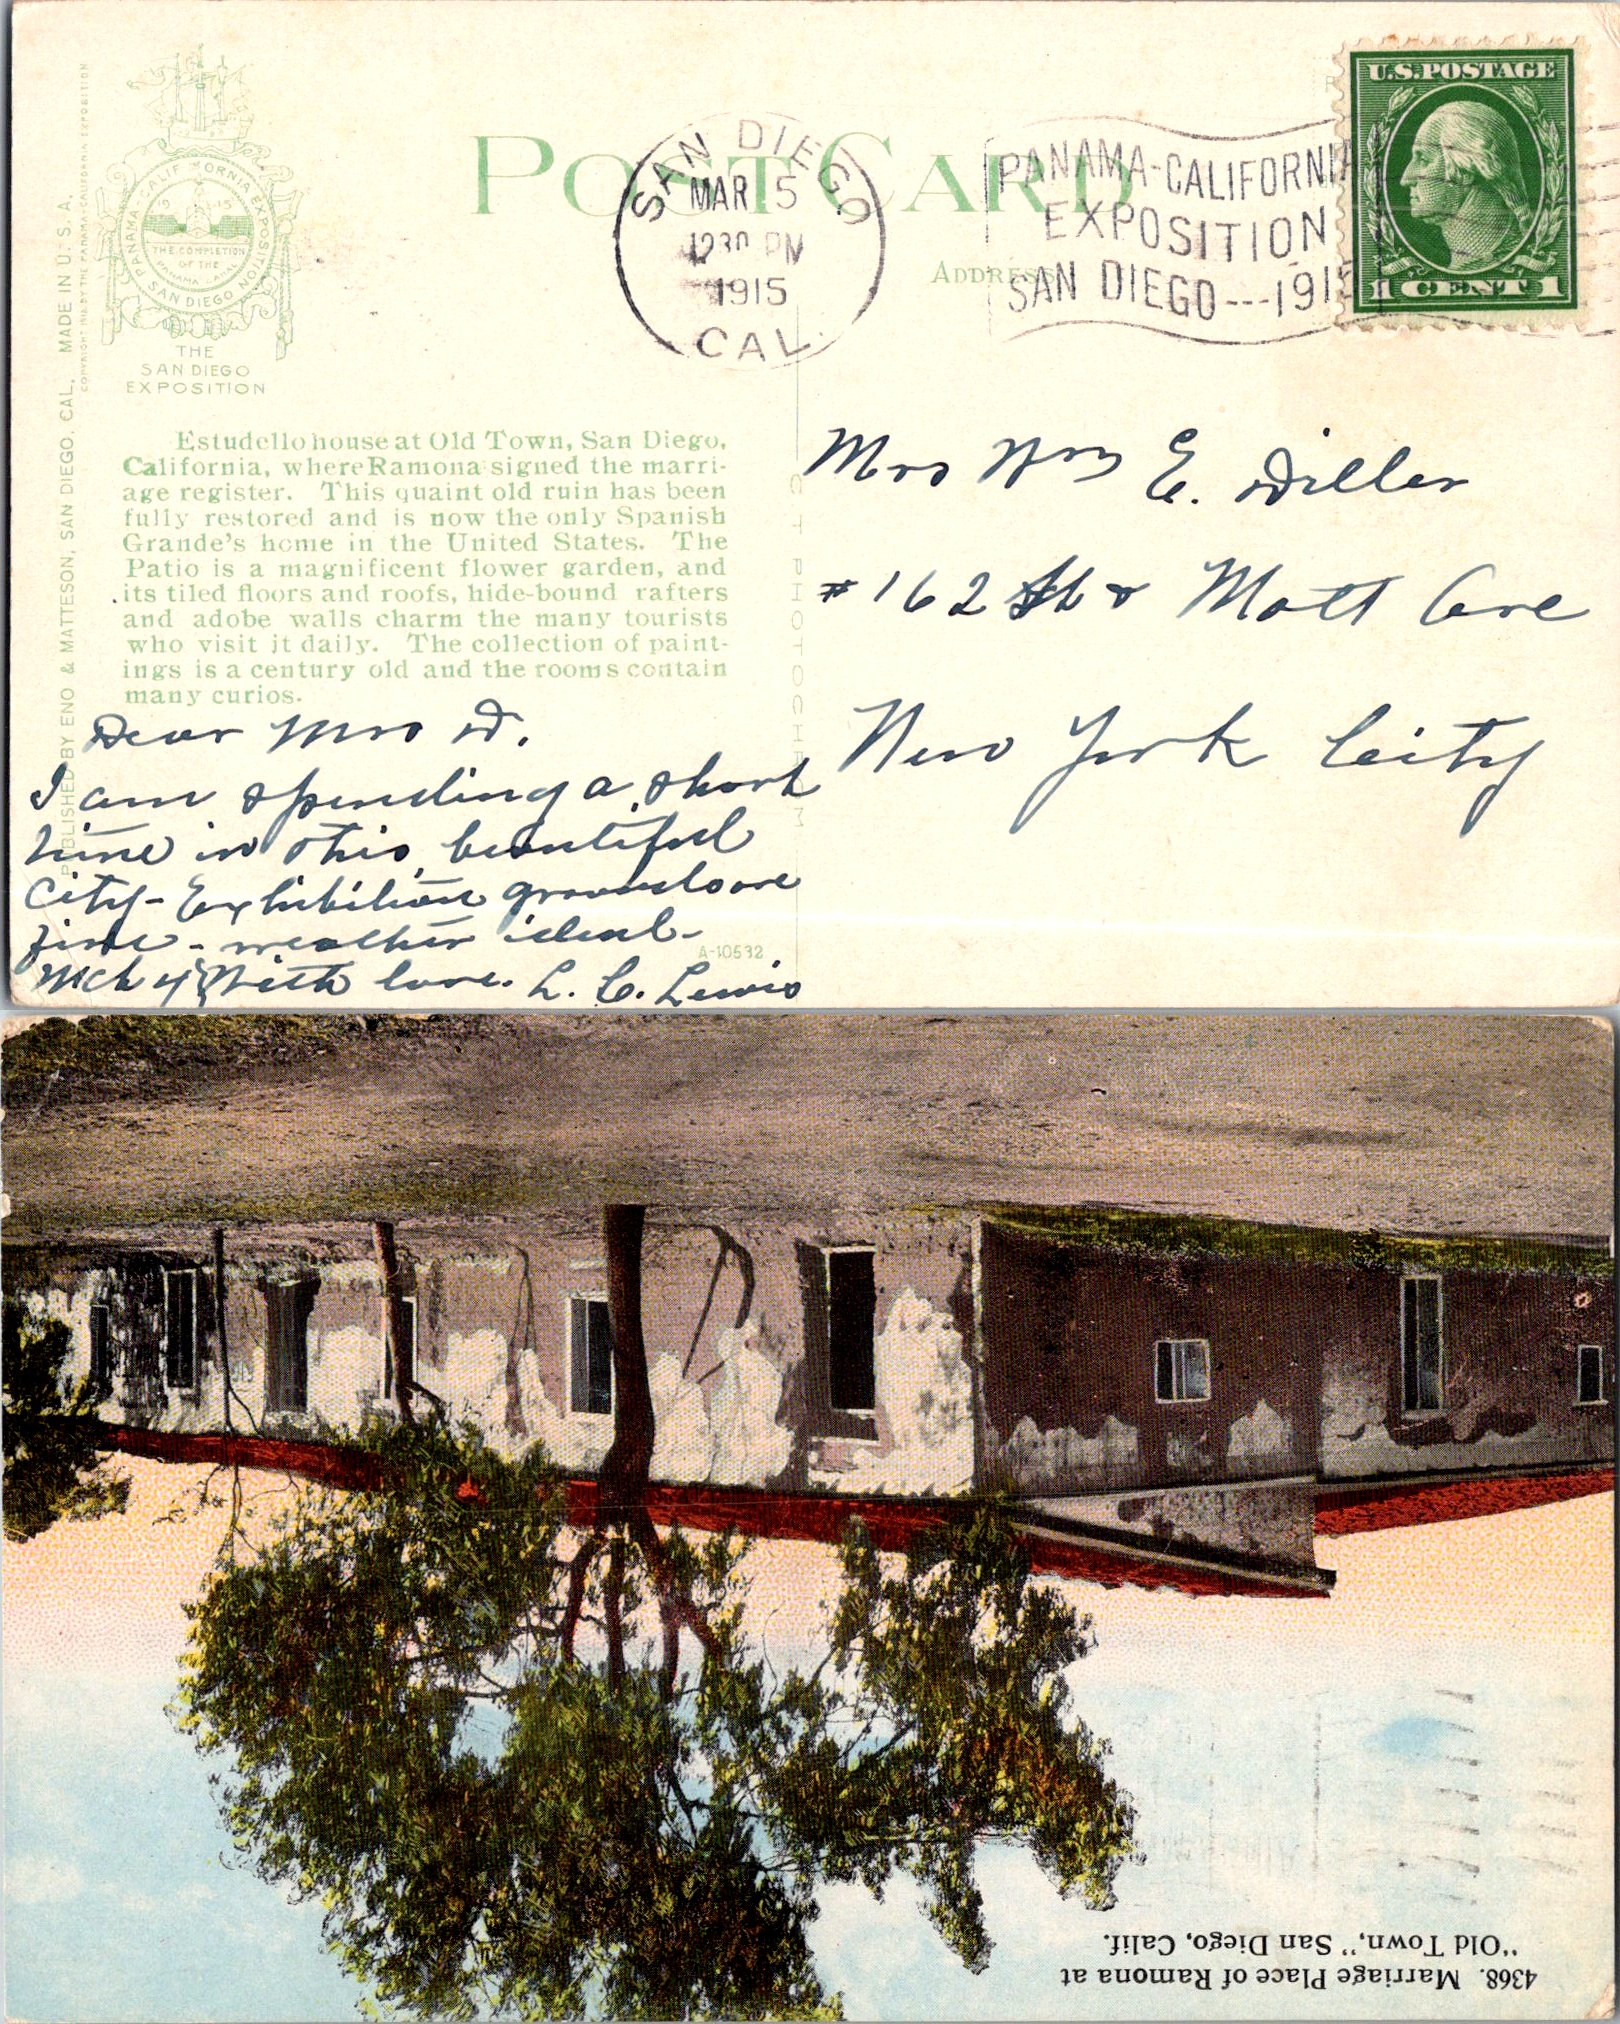 PANAMA-CALIFORNIA EXPOSITION
SAN DIEGO
1915
THE COMPLETION
OF THE
PANAMA CANAL
THE
SAN DIEGO
EXPOSITION
PUBLISHED BY ENO & MATTESON, SAN DIEGO, CAL. MADE IN U. S. A.
POST CARD
ADDRESS
SAN DIEGO
MAR 5
1230 PM
1915
CAL.
PANAMA-CALIFORNIA
EXPOSITION
SAN DIEGO---1915
U.S. POSTAGE
1 CENT 1
Estudello house at Old Town, San Diego,
California, where Ramona signed the marri-
age register. This quaint old ruin has been
fully restored and is now the only Spanish
Grande's home in the United States. The
Patio is a magnificent flower garden, and
its tiled floors and roofs, hide-bound rafters
and adobe walls charm the many tourists
who visit it daily. The collection of paint-
ings is a century old and the rooms contain
many curios.
C T PHOTOCHROM
A-10532
Dear Mrs D.
I am spending a short
time in this beautiful
City - Exhibition grounds are
fine - weather ideal -
Mch 4 With love. L. C. Lewis
Mrs Wm E. Diller
#162 St & Mott Ave
New York City
4368. Marriage Place of Ramona at
"Old Town," San Diego, Calif.